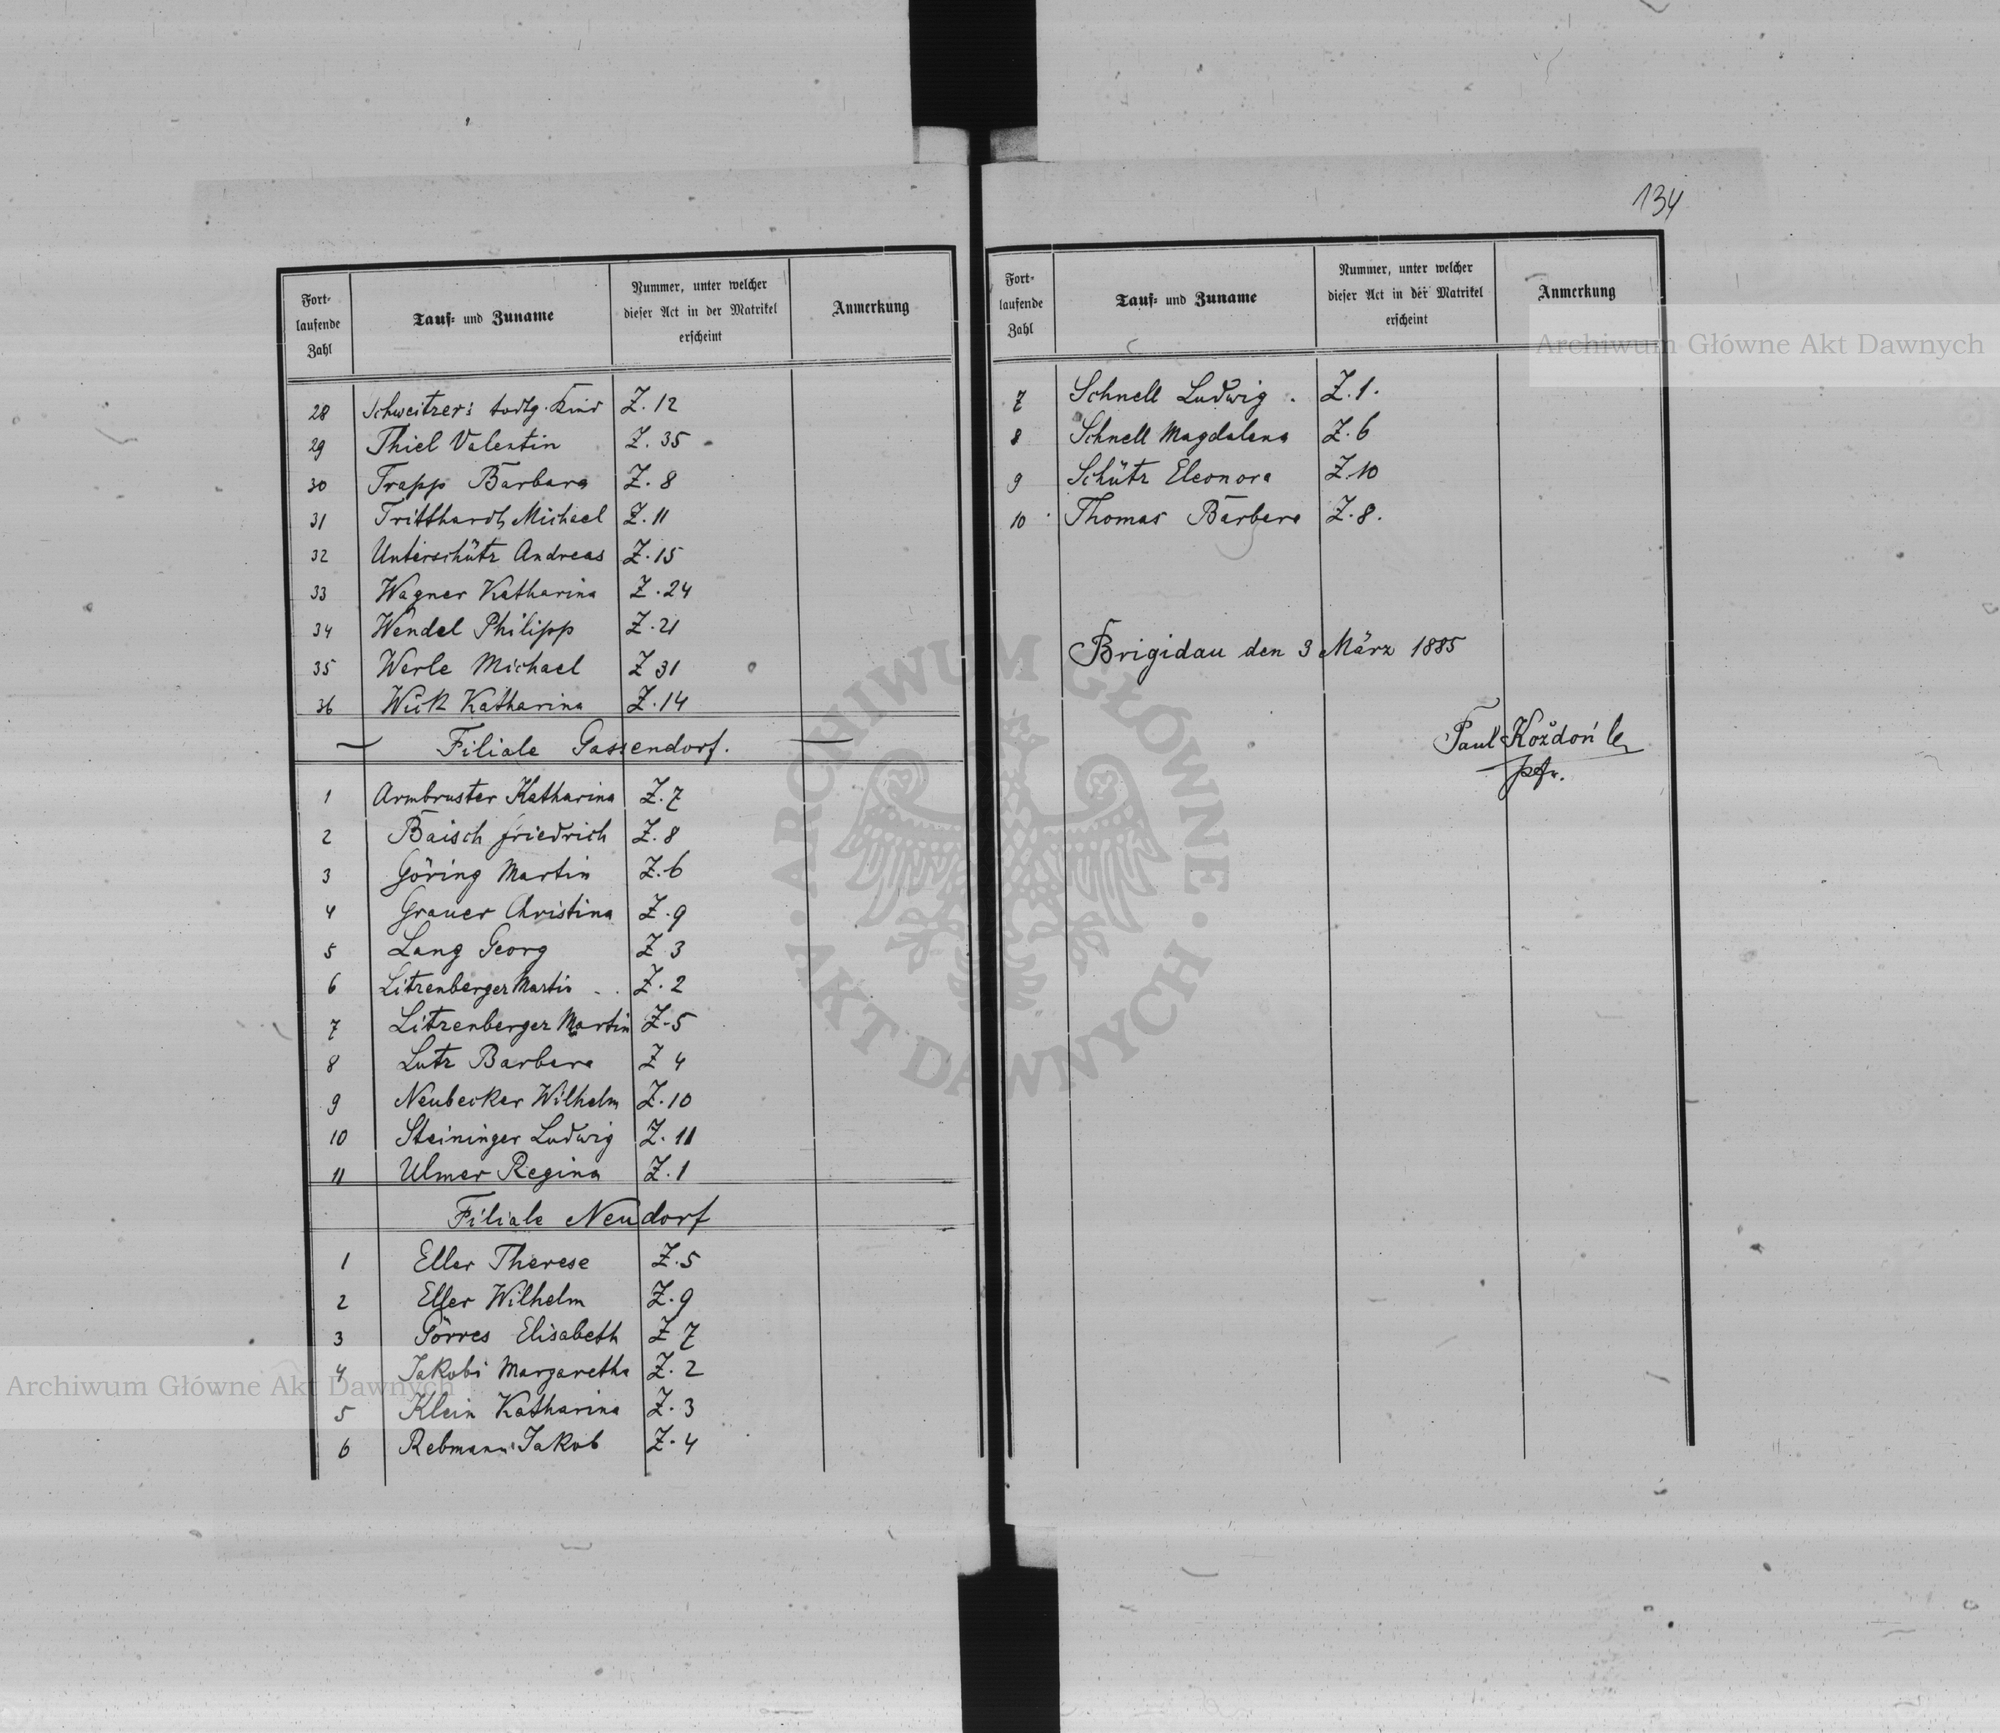 134
Fort-
laufende
Zahl
Tauf- und Zuname
Nummer, unter welcher
dieser Act in der Matrikel
erscheint
Anmerkung
28 Schweitzers todtg. Kind Z. 12
29 Thiel Valentin Z. 35
30 Trapp Barbara Z. 8
31 Tritthardt Michael Z. 11
32 Unterschütz Andreas Z. 15
33 Wagner Katharina Z. 24
34 Wendel Philipp Z. 21
35 Werle Michael Z 31
36 Wük Katharina Z. 14
Filiale Gassendorf.
1 Armbruster Katharina Z. 7
2 Baisch Friedrich Z. 8
3 Göring Martin Z. 6
4 Grauer Christina Z. 9
5 Lang Georg Z 3
6 Litzenberger Martin Z. 2
7 Litzenberger Martin Z. 5
8 Lutz Barbara Z 4
9 Neubecker Wilhelm Z. 10
10 Steininger Ludwig Z. 11
11 Ulmer Regina Z. 1
Filiale Neudorf
1 Eller Therese Z. 5
2 Eller Wilhelm Z. 9
3 Görres Elisabeth Z 7
4 Jakobi Margaretha Z. 2
5 Klein Katharina Z. 3
6 Rebmann Jakob Z. 4
Fort-
laufende
Zahl
Tauf- und Zuname
Nummer, unter welcher
dieser Act in der Matrikel
erscheint
Anmerkung
7 Schnell Ludwig Z. 1.
8 Schnell Magdalena Z. 6
9 Schütz Eleonora Z. 10
10 Thomas Barbara Z. 8.
Brigidau den 3 März 1885
Paul Kożdoń
Archiwum Główne Akt Dawnych
ARCHIWUM GŁÓWNE · AKT DAWNYCH ·
Archiwum Główne Akt Dawnych